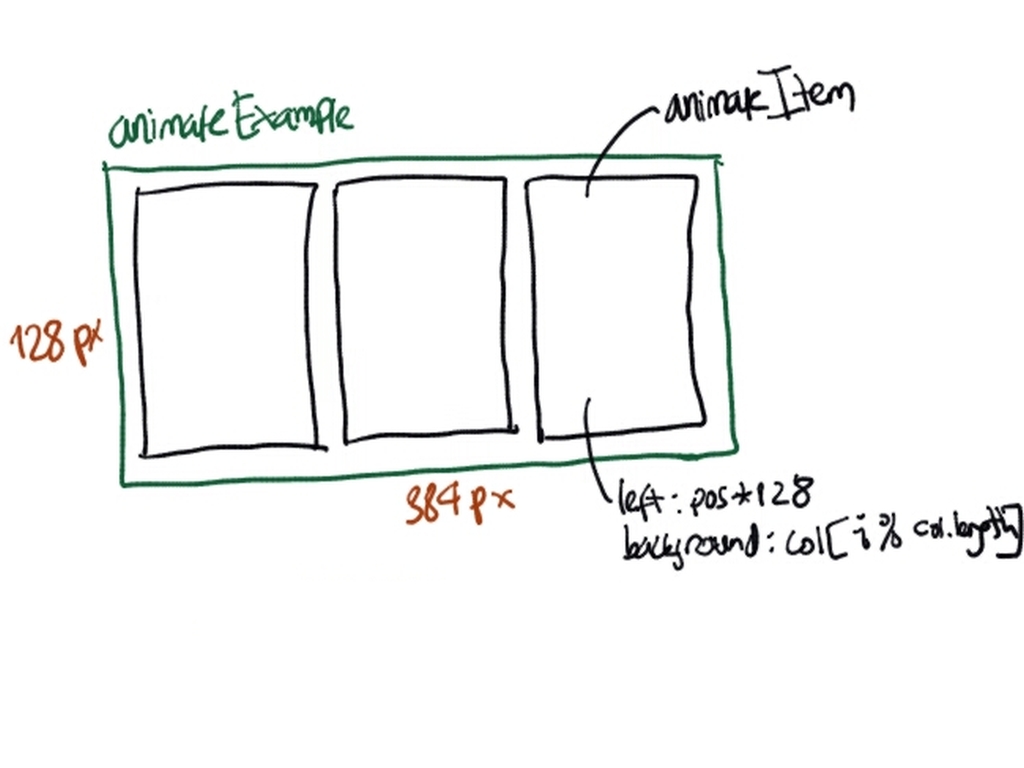 animateExample
animateItem
128 px
384 px
left: pos*128
background: col[i % col.length]